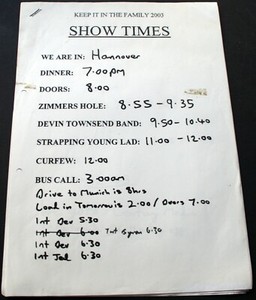 KEEP IT IN THE FAMILY 2003
SHOW TIMES
WE ARE IN: Hannover
DINNER: 7.00pm
DOORS: 8.00
ZIMMERS HOLE: 8.55 - 9.35
DEVIN TOWNSEND BAND: 9.50 - 10.40
STRAPPING YOUNG LAD: 11.00 - 12.00
CURFEW: 12.00
BUS CALL: 3.00am
Drive to Munich is 8hrs
Load in Tomorrow is 2.00 / Doors 7.00
Int Dev 5.30
Int Dev 6.00 Int 6.30
Int Dev 6.30
Int Jed 6.30